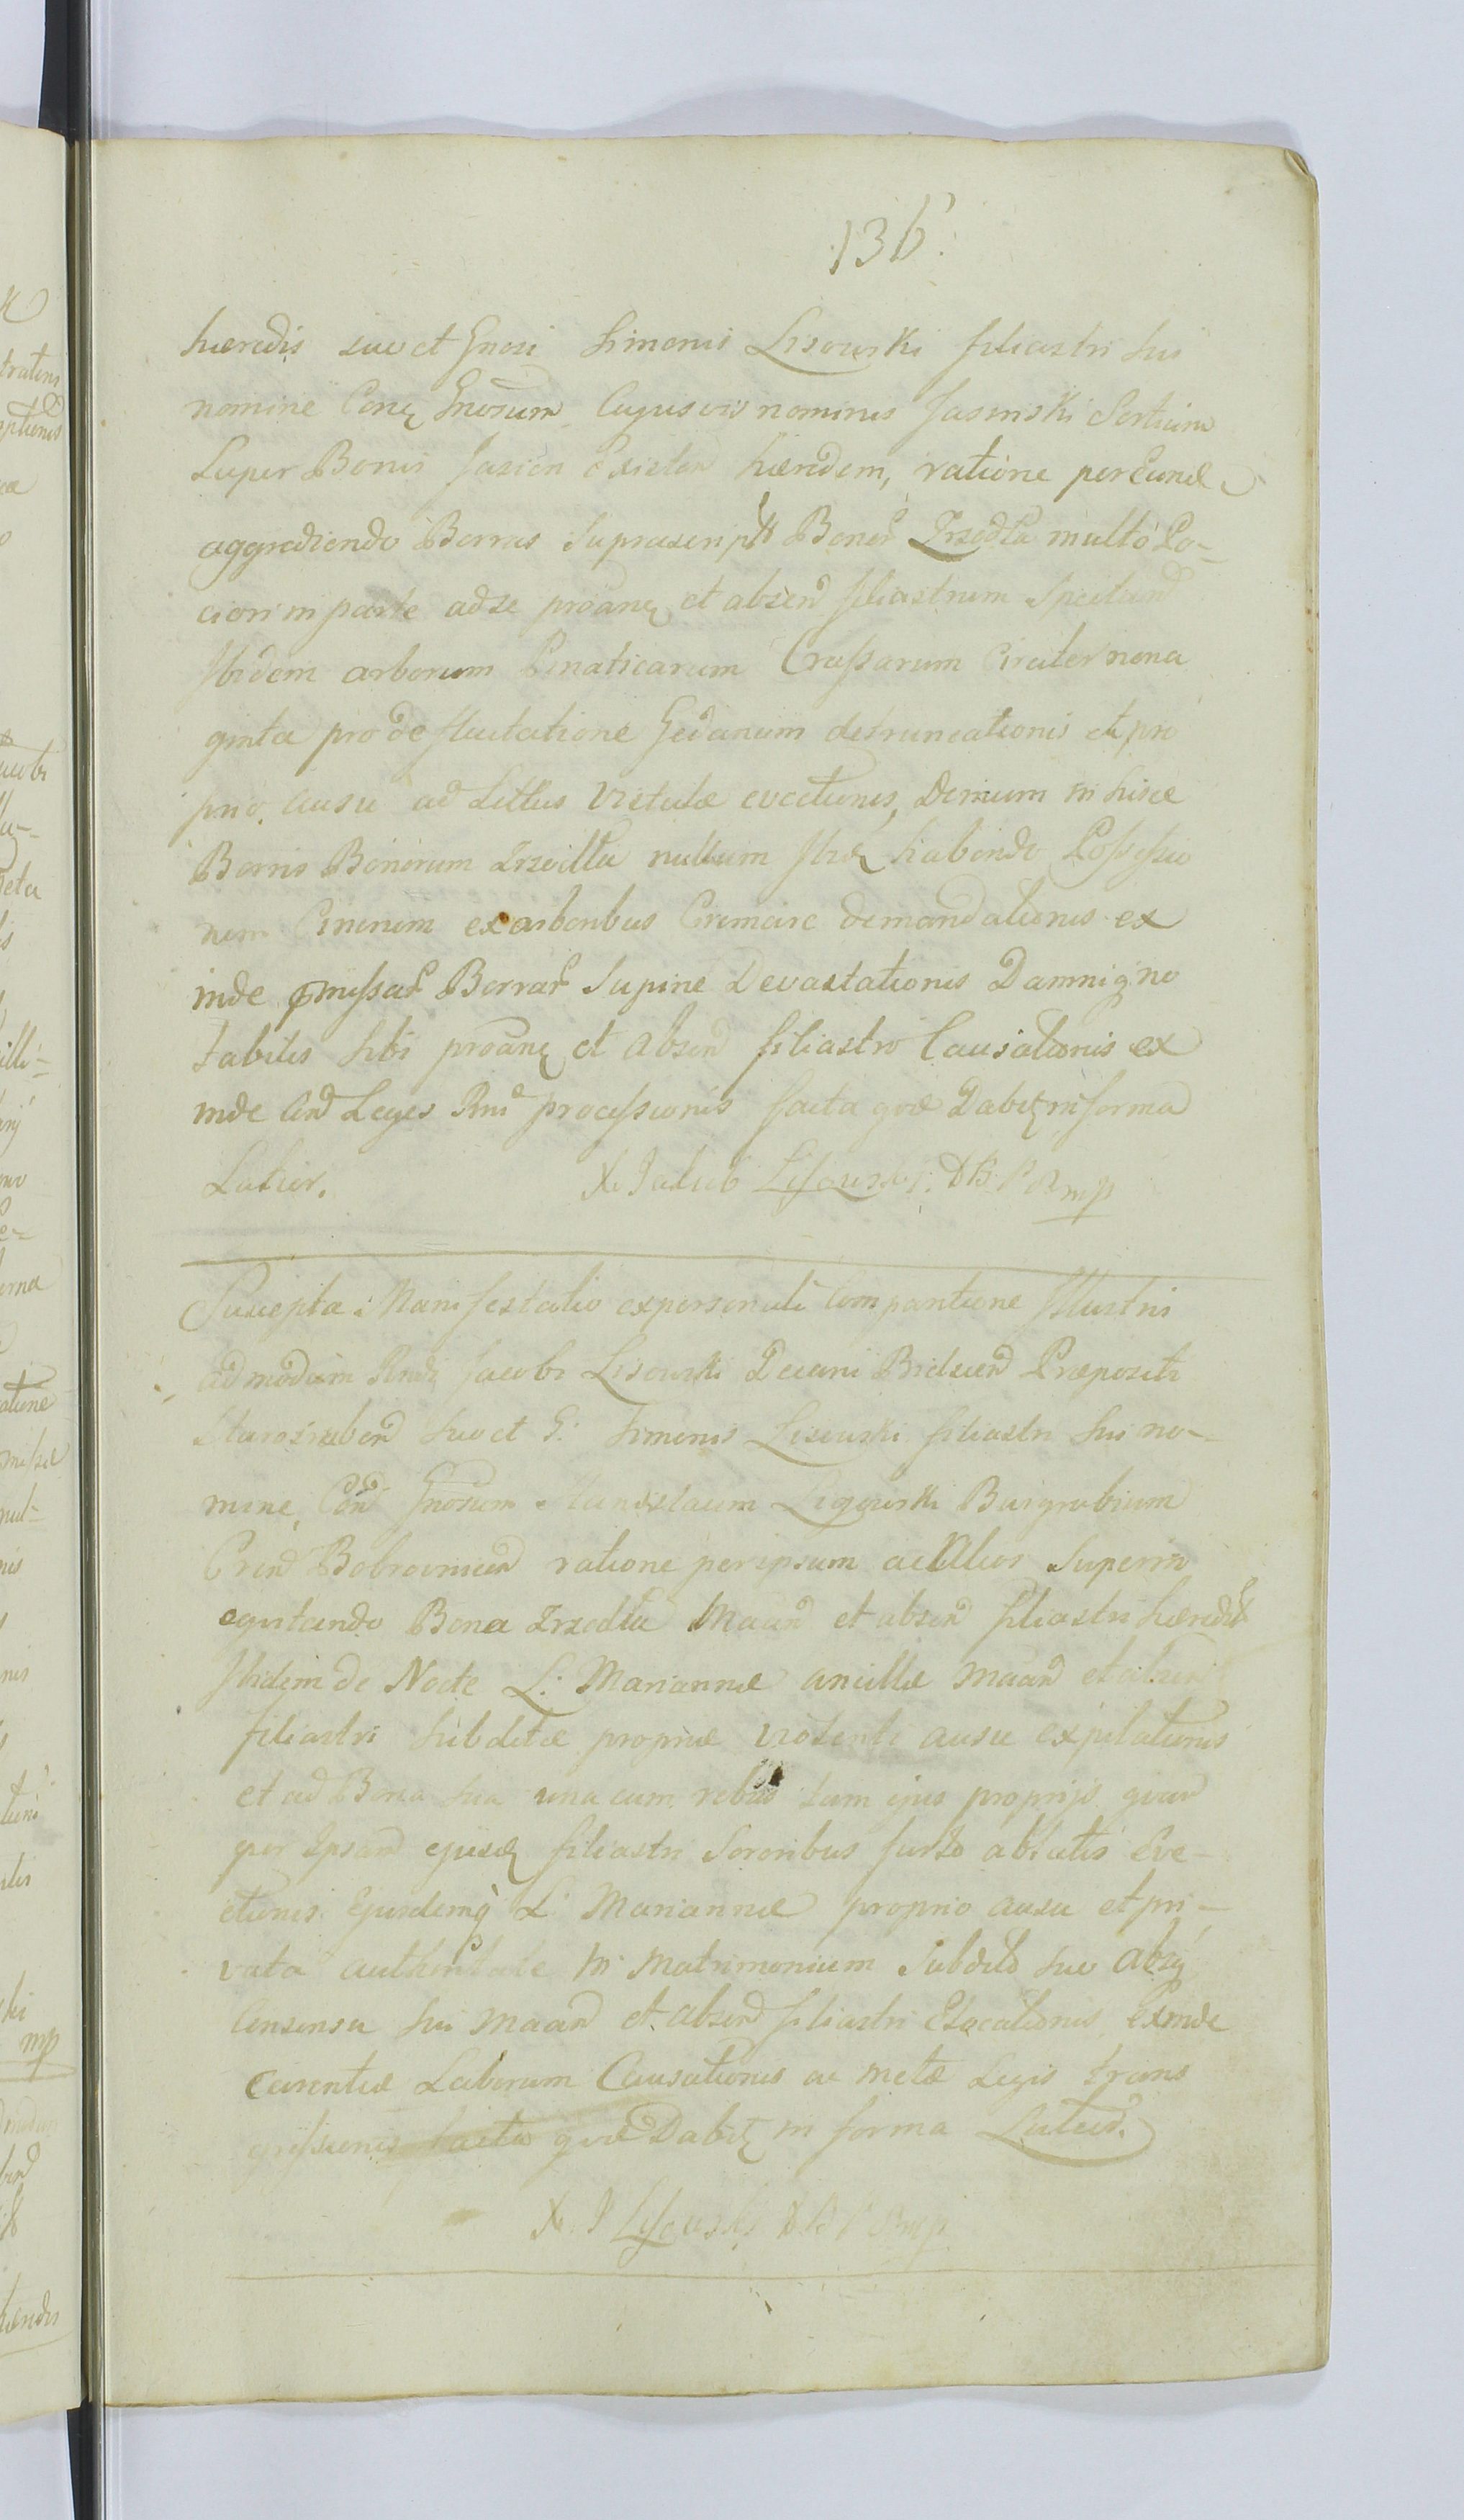 136.
hæredis suo et Gnosi Simonis Lisowski filiastri sui
nomine Conq Gnosum Cujusvis nominis Jasinski Sortium
Super Bonis Jasien Existen hæredem, ratione per Eund
aggrediendo Borras Suprascriptt Bonor Trzcilla multo Po-
ciori in parte ad se proanq et absen filiastrum Spectand
Ibidem arborum Pinaticarum Crassarum Circiter nona
ginta pro defluitatione Gedanum detruncationis et pro
prio ausu ad Littus Vistulæ evectionis, Demum in hisce
Borris Bonorum Trzcilla nullam Ibid habendo Possessio
nem Cinerum ex arboribus Cremare demandationis ex
inde pmissar Borrar Supine Devastationis Damniq no
tabilis Sibi proanq et Absen filiastro Causationis ex
inde Leges Rni processionis facta quæ Dabitz in forma
Latior.
X. Jakub Lisowski. DB. P mp
Suscepta: Manifestatio ex personali Comparitione Illustris
admodum Rndi Jacobi Lisowski Decani Præpositi
suo et G: Simonis Lisowski filiastri sui no-
mine, Con Gnosum Stanislaum Ligowski Burgrabium
Bobrovnicen ratione per ipsum ac Alios Superin
equitando Bona Trzcilla Maan et absen filiastri hæredit
Ibidem de Nocte L: Mariannæ ancillæ maan et absen
filiastri Subditæ propriæ violenti ausu expilationis
et ad Bona sua una cum rebus tam ejus proprijs quam
per Ipsam ejusd filiastri Sororibus furto ablatis Eve-
ctionis Ejusdemq L: Mariannæ proprio ausu et pri-
vata authoritate in Matrimonium Subdito suo absq
Consensu sui maan et absen filiastri Elocationis Exinde
carentiæ Laborum Causationis ac metæ Legis trans
gressionis facta quæ Dabitz in forma Latiori.
X. J Lisowski DB P mp